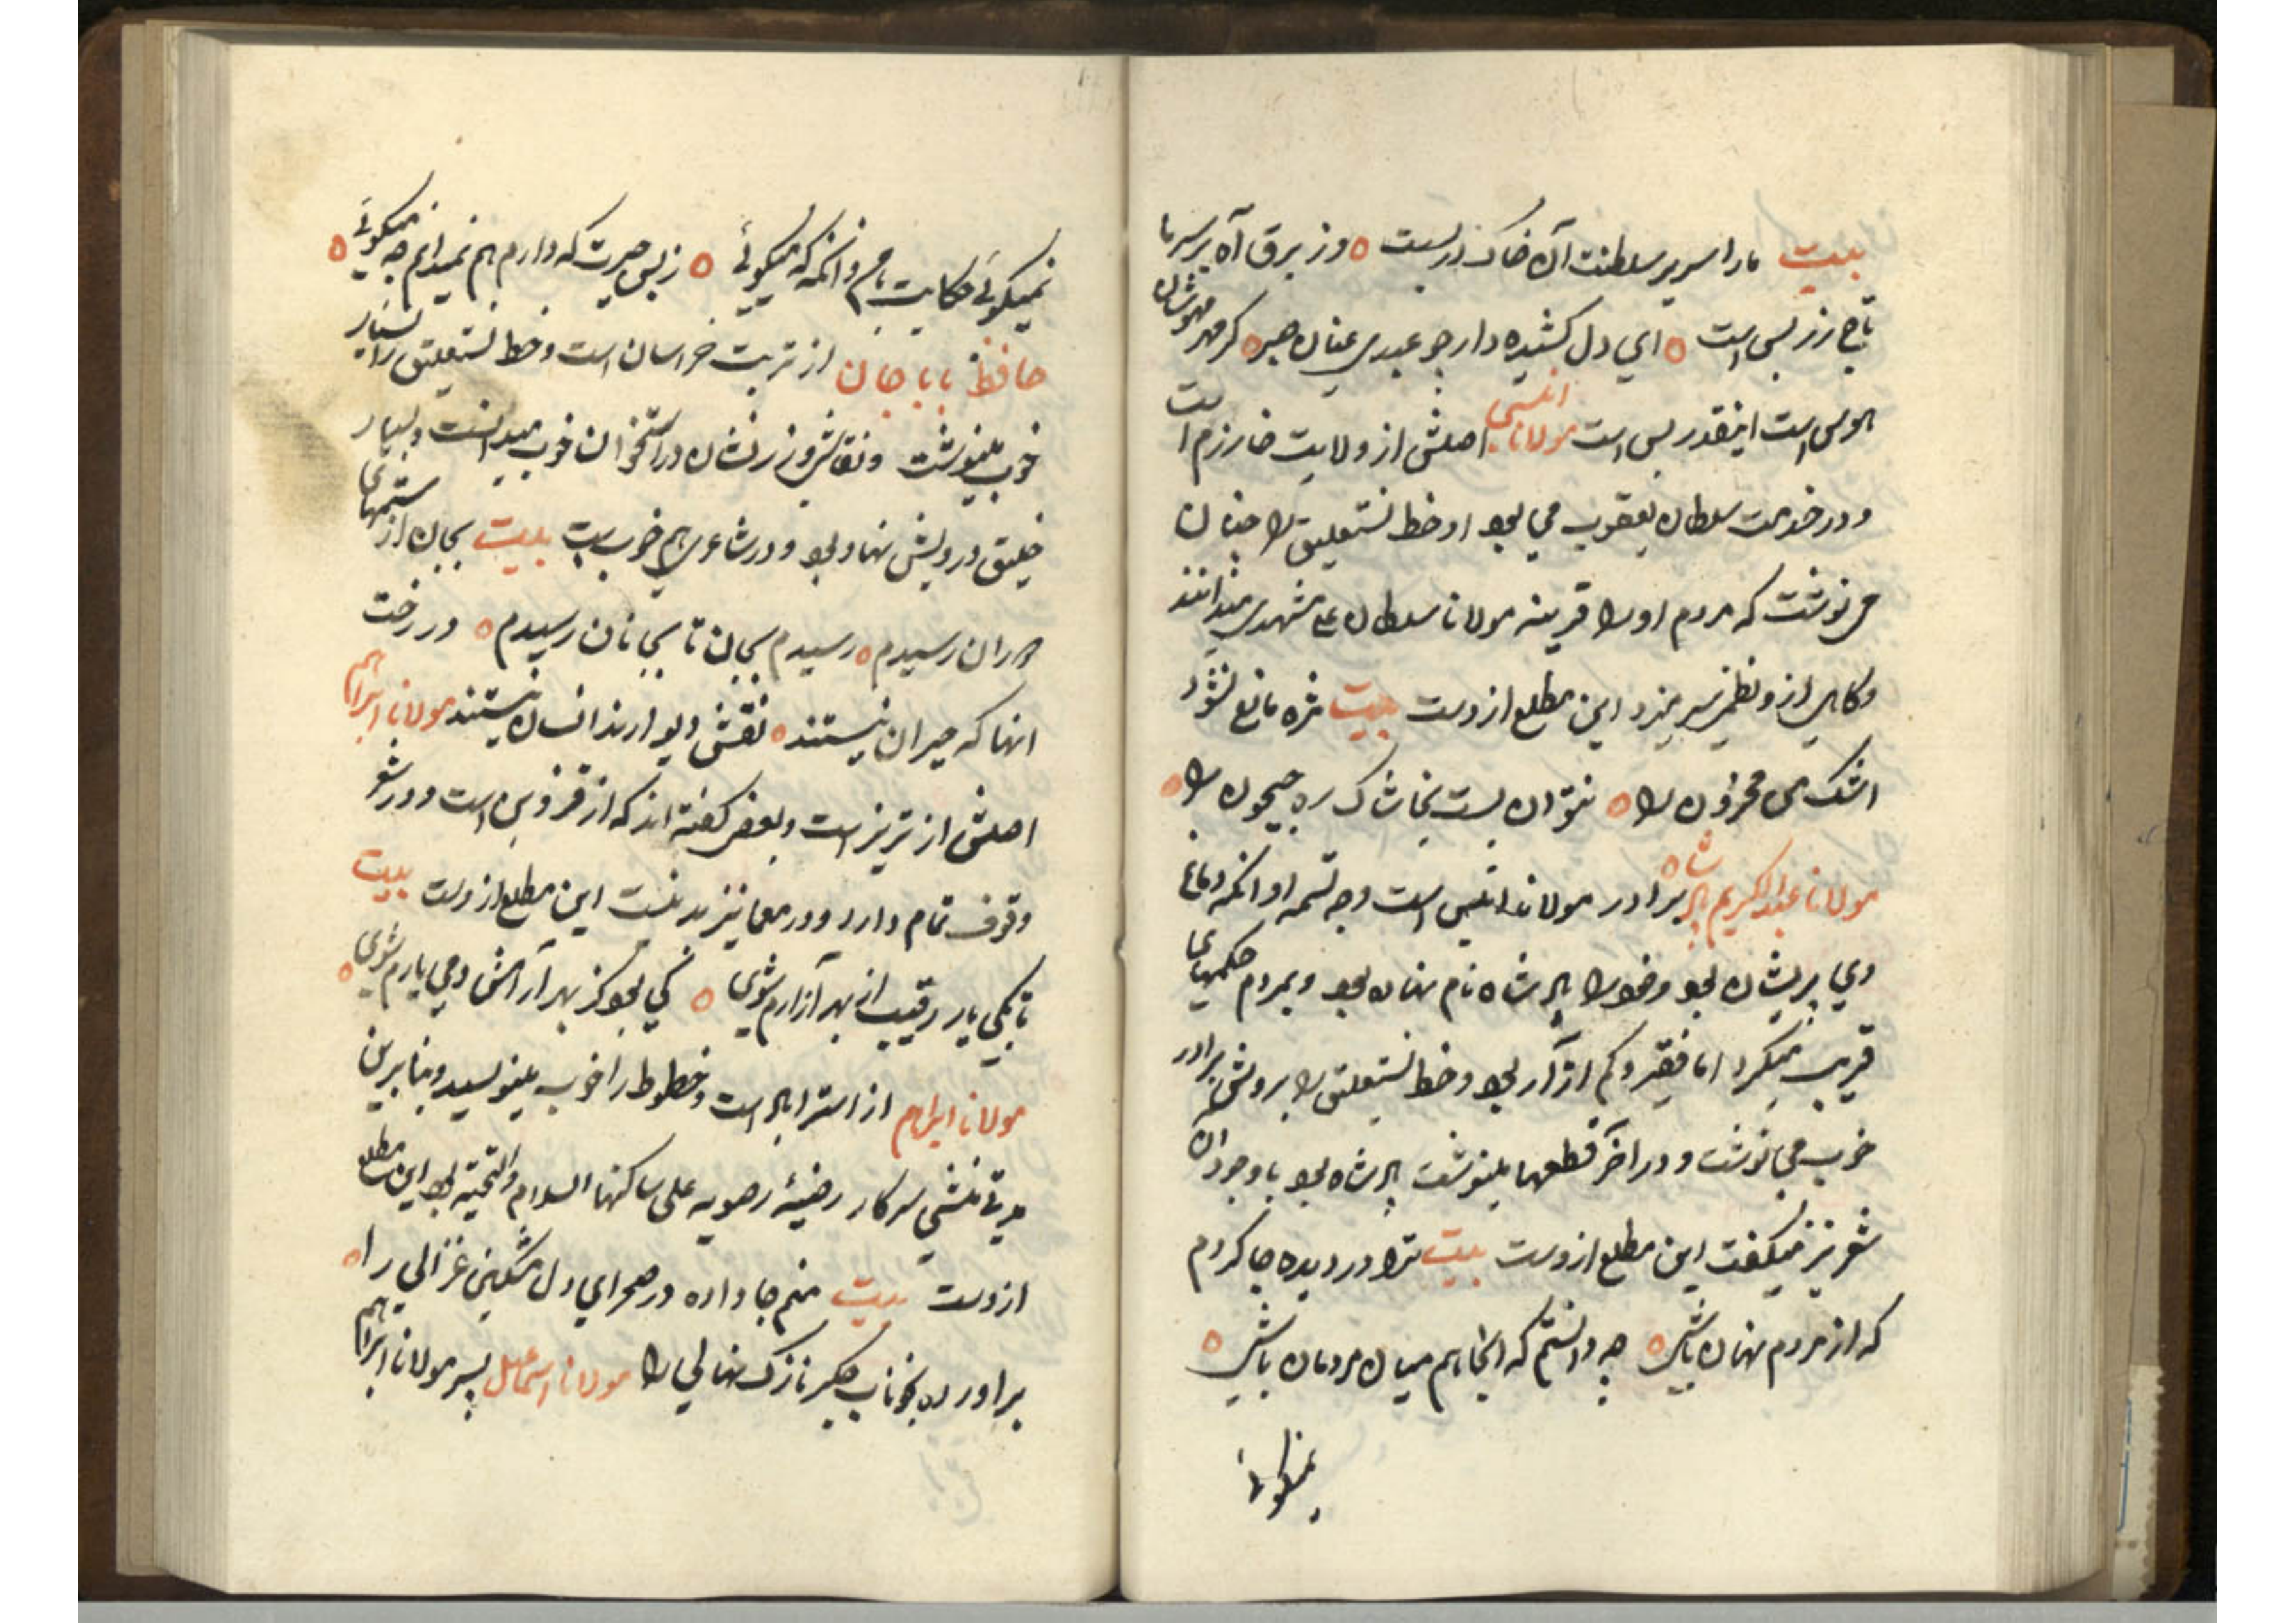 بیت ما را سریر سلطنت آن خاک در بست ه وز برق آه بر سر ما
تاج زر بس است ه ای دل کشیده دار چو عبدی عنان صبر ه کر مهر مهوشان
هوس است اینقدر بس است مولانا انسی اصلش از ولایت خارزم است
و در خدمت سلطان یعقوب می بود او خط نستعلیق را چنان
می نوشت که مردم او را قرینه مولانا سلطان علی مشهدی میدانند
و کاهی از و نظم سر میزد این مطلع از وست بیت مژه مانع نشود
اشک من محزون را ه نتوان بست بخاشاک ره جیحون را ه
مولانا عبدالکریم پادشاه برادر مولانا انیس است وجه تسمیه او انکه دماغ
وی پریشان بود و خود را پادشاه نام نهاده بود و بمردم حکمهای
قریب میکرد اما فقیر و کم ازار بود و خط نستعلیق را بروش برادر
خوب می نوشت و در آخر قطعها مینوشت پادشاه بود با وجود ان
شعر نیز میکفت این مطلع از وست بیت ترا در دیده جا کردم
که از مردم نهان باشی ه چه دانستم که اینجا هم میان مردمان باشی ه
نمیکوئی
نمیکوئی حکایت با من و انکه که میکوئی ه ز بس حیرت که دارم هم نمیدانم چه میکوئی ه
حافظ بابا جان از تربت خراسان است و خط نستعلیق را بسیار
خوب مینوشت و نقاشی و زرنشان در استخوان خوب میدانست و بسیار
خلیق درویش نهاد بود و در شاعری هم خوبست بیت بجان از ستمهای
هجران رسیدم ه رسیدم بجان تا بجانان رسیدم ه در رخت
انها که حیران نیستند ه نقش دیوارند انسان نیستند مولانا ابراهیم
اصلش از تبریز است و بعضی کفته اند که از قزوین است و در شعر
وقوف تمام دارد و در معما نیز بد نیست این مطلع از وست بیت
تا بکی یار رقیب از بهر آزارم شوی ه کی بود کز بهر آرامش دمی یارم شوی ه
مولانا ابراهیم از استراباد است و خطوط را خوب مینویسد و بنا برین
مدتی منشی سرکار رضیه رضویه علی ساکنها السلام والتحیه بود این مطلع
از وست بیت منم جا داده در صحرای دل مشکین غزالی را ه
براورده بخوناب جکر نازک نهالی را مولانا اسمعیل پسر مولانا ابراهیم